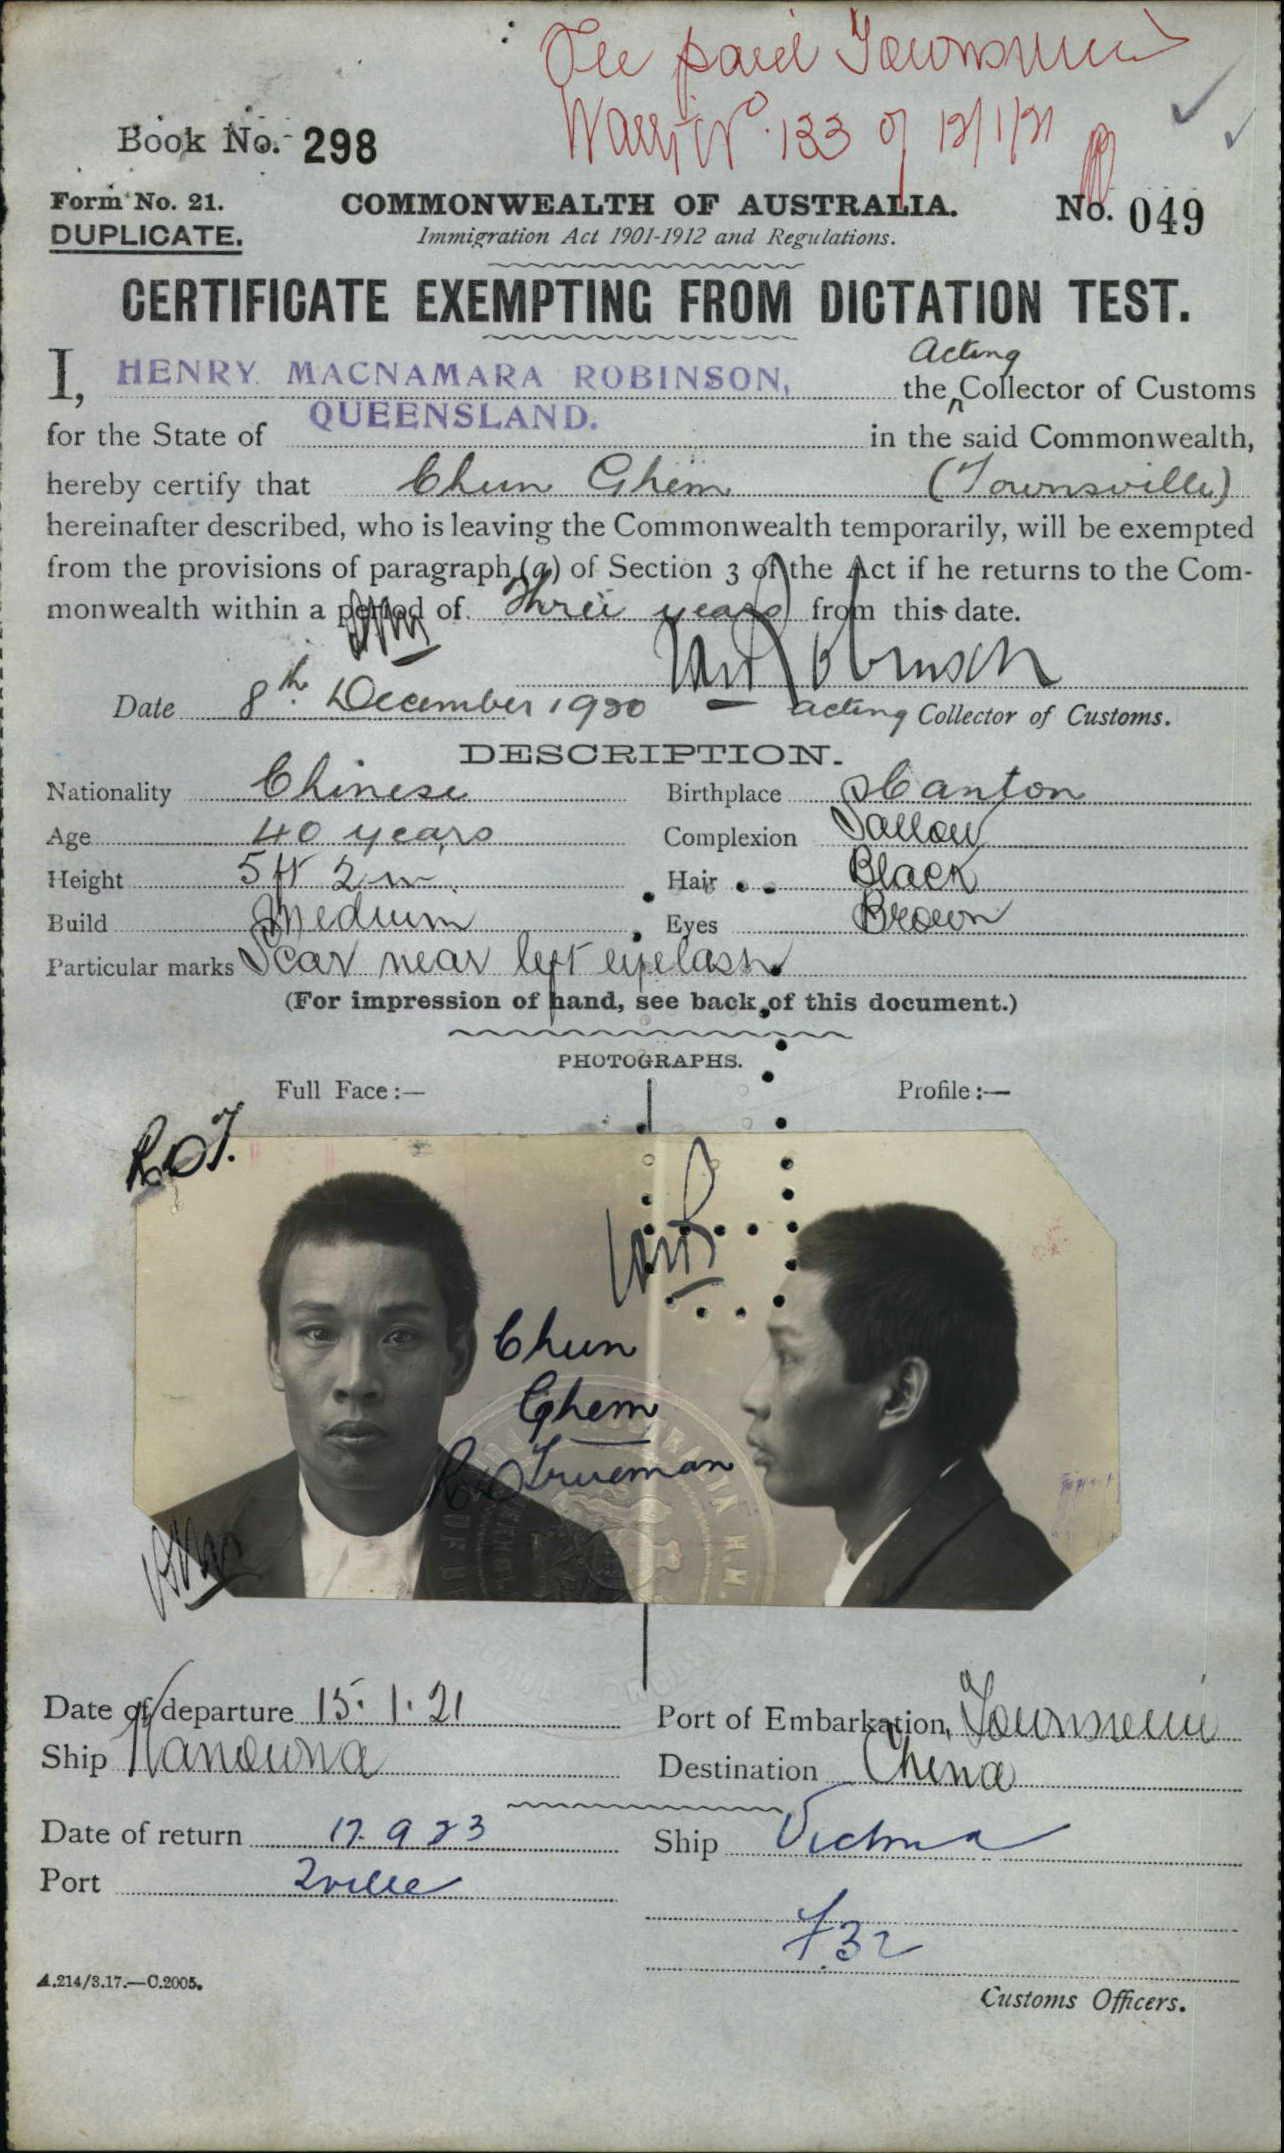 Fee paid Townsville
Warrt No. 133 of 12/1/21
Book No. 298
Form No. 21.
COMMONWEALTH OF AUSTRALIA.
No. 049
DUPLICATE.
Immigration Act 1901-1912 and Regulations.
CERTIFICATE EXEMPTING FROM DICTATION TEST.
Acting
I, HENRY MACNAMARA ROBINSON, the Collector of Customs
for the State of QUEENSLAND. in the said Commonwealth,
hereby certify that Chun Ghem (Townsville)
hereinafter described, who is leaving the Commonwealth temporarily, will be exempted
from the provisions of paragraph (a) of Section 3 of the Act if he returns to the Com-
monwealth within a period of Three years from this date.
HMR
HM Robinson
Date 8th. December 1920 acting Collector of Customs.
DESCRIPTION.
Nationality Chinese Birthplace Canton
Age 40 years Complexion Sallow
Height 5 ft 2 in. Hair Black
Build Medium Eyes Brown
Particular marks Scar near left eyelash
(For impression of hand, see back of this document.)
PHOTOGRAPHS.
Full Face:— Profile:—
R.O.T.
HMR
Chun
Ghem
R O Trueman
HMR
Date of departure 15.1.21 Port of Embarkation, Townsville
Ship Kanowna Destination China
Date of return 17.9.23 Ship Victoria
Port Tville
F32
A.214/3.17.—C.2005.
Customs Officers.